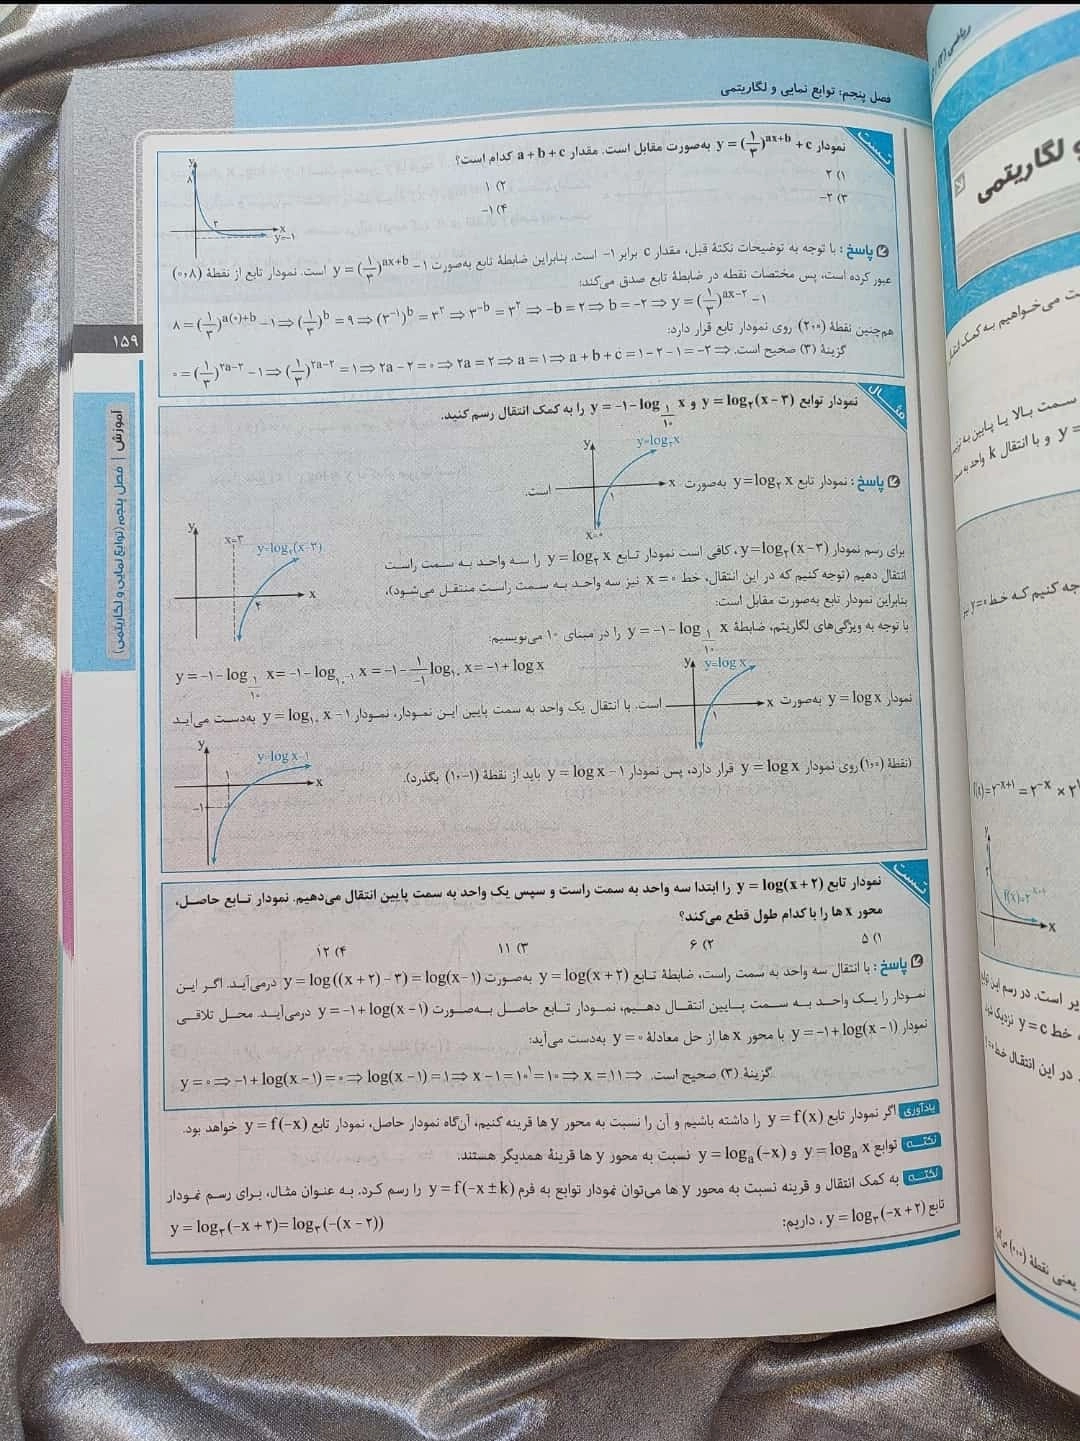 فصل پنجم: توابع نمایی و لگاریتمی
تست
نمودار y = (۱/۳)^(ax+b) + c به‌صورت مقابل است. مقدار a + b + c کدام است؟
۱) ۲
۲) ۱
۳) ۲−
۴) ۱−
y
۸
۲
x
y=−۱
پاسخ: با توجه به توضیحات نکتهٔ قبل، مقدار c برابر ۱− است. بنابراین ضابطهٔ تابع به‌صورت y = (۱/۳)^(ax+b) − ۱ است. نمودار تابع از نقطهٔ (۰,۸)
عبور کرده است، پس مختصات نقطه در ضابطهٔ تابع صدق می‌کند:
۸ = (۱/۳)^(a(۰)+b) − ۱ ⇒ (۱/۳)^b = ۹ ⇒ (۳^−۱)^b = ۳^۲ ⇒ ۳^−b = ۳^۲ ⇒ −b = ۲ ⇒ b = −۲ ⇒ y = (۱/۳)^(ax−۲) − ۱
هم‌چنین نقطهٔ (۲,۰) روی نمودار تابع قرار دارد:
۰ = (۱/۳)^(۲a−۲) − ۱ ⇒ (۱/۳)^(۲a−۲) = ۱ ⇒ ۲a − ۲ = ۰ ⇒ ۲a = ۲ ⇒ a = ۱ ⇒ a + b + c = ۱ − ۲ − ۱ = −۲ ⇒ گزینهٔ (۳) صحیح است.
۱۵۹
آموزش | فصل پنجم (توابع نمایی و لگاریتمی)
مثال
نمودار توابع y = log₂(x − ۳) و y = −۱ − log_(۱/۱۰) x را به کمک انتقال رسم کنید.
y
y=log₂x
x
۱
x=۰
پاسخ: نمودار تابع y = log₂ x به‌صورت
است.
y
x=۳
y=log₂(x−۳)
x
۴
برای رسم نمودار y = log₂(x − ۳)، کافی است نمودار تابع y = log₂ x را سه واحد به سمت راست
انتقال دهیم (توجه کنیم که در این انتقال، خط x = ۰ نیز سه واحد به سمت راست منتقل می‌شود)،
بنابراین نمودار تابع به‌صورت مقابل است:
با توجه به ویژگی‌های لگاریتم، ضابطهٔ y = −۱ − log_(۱/۱۰) x را در مبنای ۱۰ می‌نویسیم:
y = −۱ − log_(۱/۱۰) x = −۱ − log_(۱۰^−۱) x = −۱ − (۱/−۱) log₁₀ x = −۱ + log x
y
y=log x
x
۱
نمودار y = log x به‌صورت
است. با انتقال یک واحد به سمت پایین این نمودار، نمودار y = log₁₀ x − ۱ به‌دست می‌آید
(نقطهٔ (۱,۰) روی نمودار y = log x قرار دارد، پس نمودار y = log x − ۱ باید از نقطهٔ (۱,−۱) بگذرد).
y
y=log x−۱
۱
x
−۱
تست
نمودار تابع y = log(x + ۲) را ابتدا سه واحد به سمت راست و سپس یک واحد به سمت پایین انتقال می‌دهیم. نمودار تابع حاصل،
محور x ها را با کدام طول قطع می‌کند؟
۱) ۵
۲) ۶
۳) ۱۱
۴) ۱۲
پاسخ: با انتقال سه واحد به سمت راست، ضابطهٔ تابع y = log(x + ۲) به‌صورت y = log((x + ۲) − ۳) = log(x−۱) درمی‌آید. اگر این
نمودار را یک واحد به سمت پایین انتقال دهیم، نمودار تابع حاصل به‌صورت y = −۱ + log(x − ۱) درمی‌آید. محل تلاقی
نمودار y = −۱ + log(x − ۱) با محور x ها از حل معادلهٔ y = ۰ به‌دست می‌آید:
y = ۰ ⇒ −۱ + log(x − ۱) = ۰ ⇒ log(x − ۱) = ۱ ⇒ x − ۱ = ۱۰^۱ = ۱۰ ⇒ x = ۱۱ ⇒ گزینهٔ (۳) صحیح است.
یادآوری اگر نمودار تابع y = f(x) را داشته باشیم و آن را نسبت به محور y ها قرینه کنیم، آن‌گاه نمودار حاصل، نمودار تابع y = f(−x) خواهد بود.
نکته توابع y = logₐ x و y = logₐ(−x) نسبت به محور y ها قرینهٔ همدیگر هستند.
نکته به کمک انتقال و قرینه نسبت به محور y ها می‌توان نمودار توابع به فرم y = f(−x ± k) را رسم کرد. به عنوان مثال، برای رسم نمودار
تابع y = log₳(−x + ۲)، داریم:
y = log₃(−x + ۲) = log₃(−(x − ۲))
ریاضی (۲)
و لگاریتمی
f(x)=۲^(−x+۱) = ۲^−x × ۲
y
۲
x